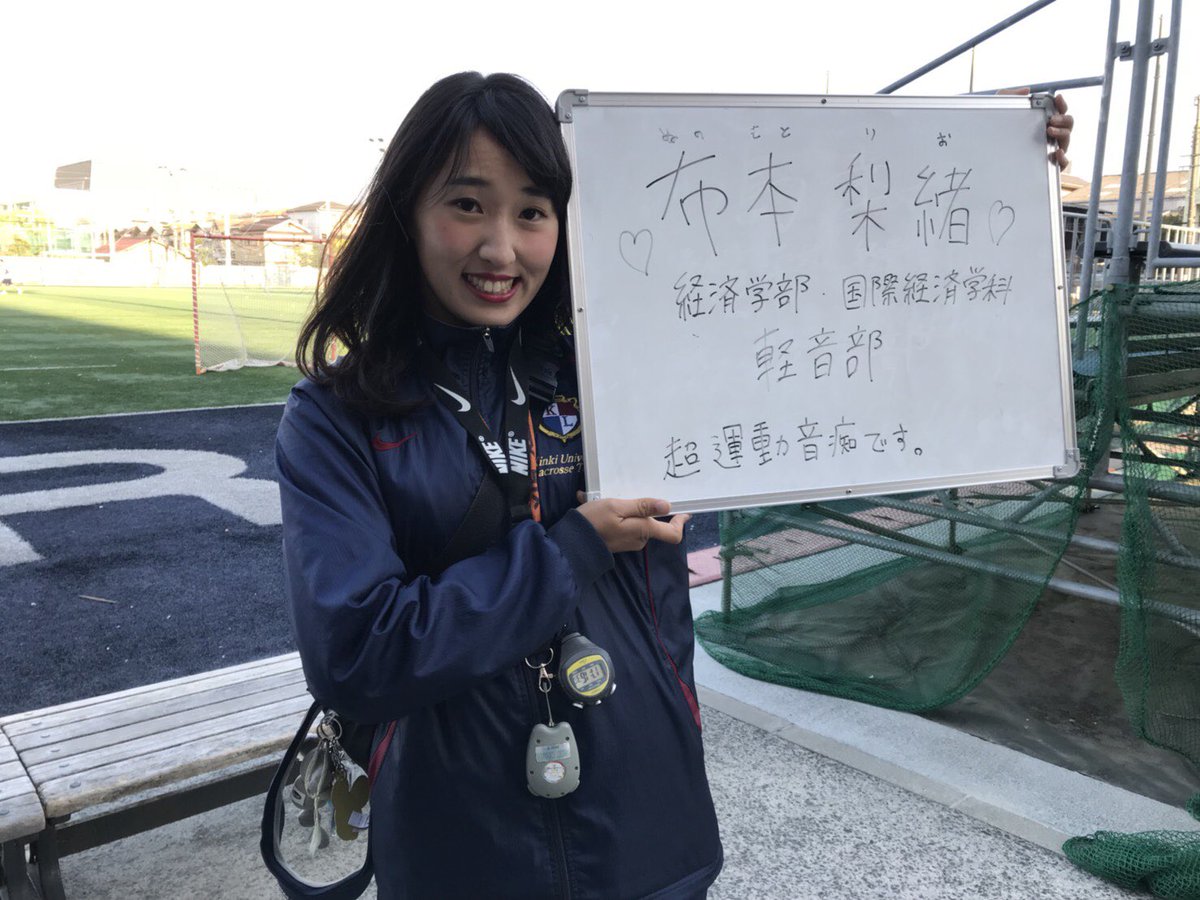 ぬのもとりお
布本 梨緒
経済学部・国際経済学科
軽音部
超運動音痴です。
NIKE
NIKE
K L
inki Univ
acrosse T
R